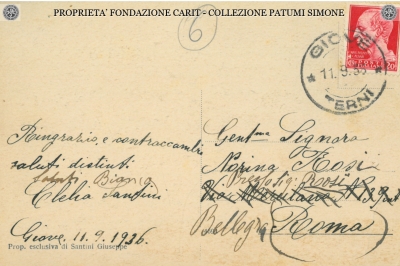 PROPRIETA' FONDAZIONE CARIT - COLLEZIONE PATUMI SIMONE
6
GIOVE
11.9.36
TERNI
Ringrazio, e contraccambio
saluti distinti
saluti Bianca
Clelia Santini
Giove, 11.9.1936
Prop. esclusiva di Santini Giuseppe
Gent.ma Signora
Norina Rosi
Presso Sig. Rosi
Via
Bellegra
Roma